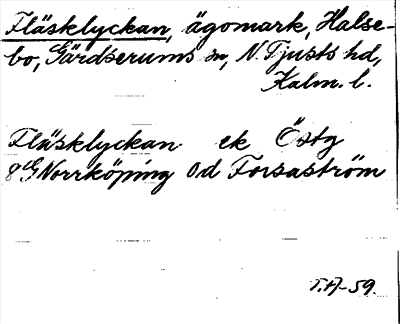 Fläsklyckan, ägomark, Halse-
bo, Gärdserums sn, N. Tjusts hd,
Kalm. l.
Fläsklyckan ek Östg
8G Norrköping Od Forsaström
T.A-59.